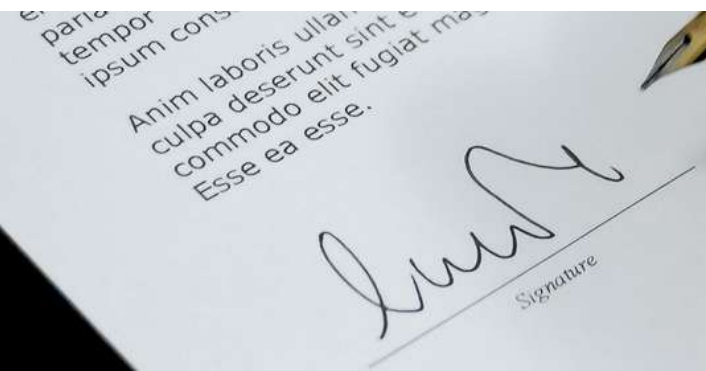 paria
tempor
ipsum cons
Anim laboris ullam
culpa deserunt sint e
commodo elit fugiat mag
Esse ea esse.
Signature